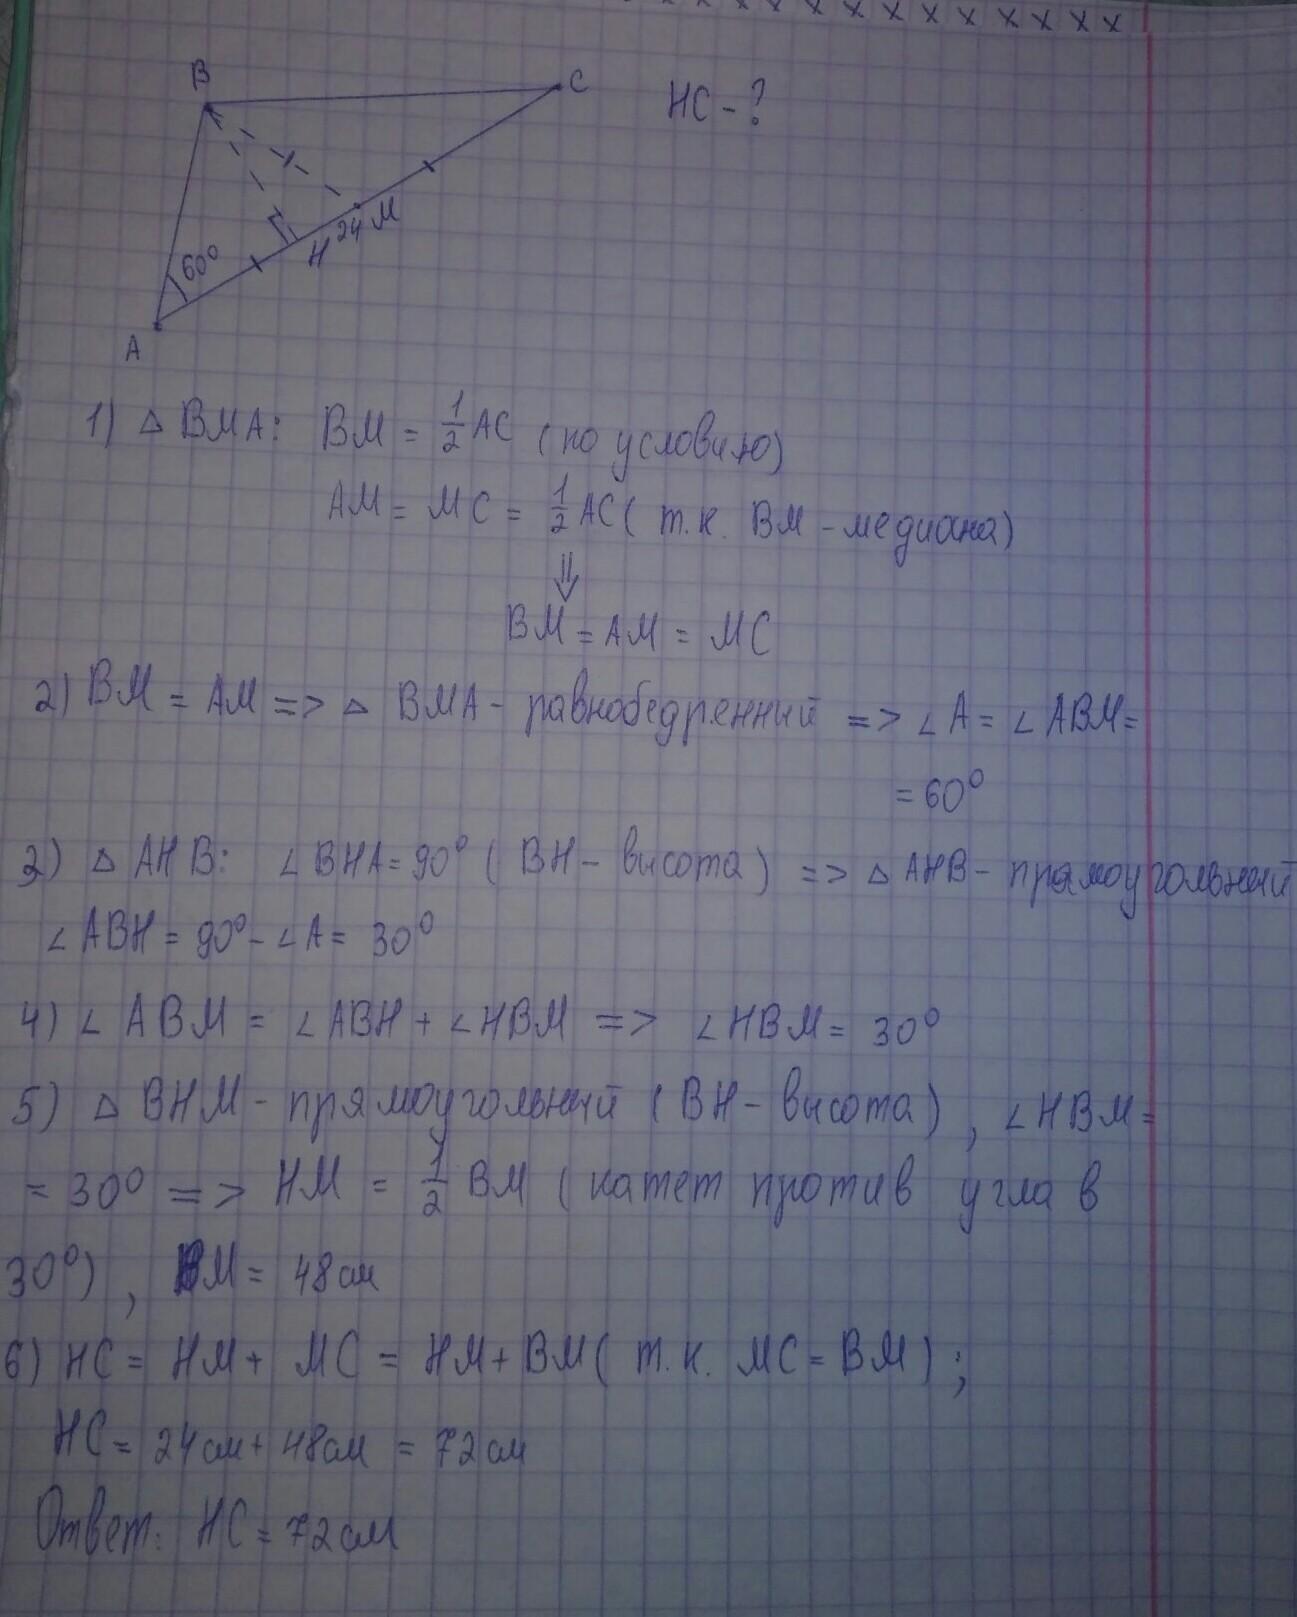 x x x x x x x x x x x x x
B
C
HC - ?
60°
H 24 M
A
1) △ BMA: BM = 1/2 AC (по условию)
AM = MC = 1/2 AC (т.к. BM - медиана)
⇓
BM = AM = MC
2) BM = AM => △ BMA - равнобедренный => ∠A = ∠ABM =
= 60°
3) △ AHB: ∠BHA = 90° (BH - высота) => △ AHB - прямоугольный
∠ABH = 90° - ∠A = 30°
4) ∠ABM = ∠ABH + ∠HBM => ∠HBM = 30°
5) △ BHM - прямоугольный (BH - высота), ∠HBM =
= 30° => HM = 1/2 BM (катет против угла в
30°), BM = 48 см
6) HC = HM + MC = HM + BM (т.к. MC = BM);
HC = 24 см + 48 см = 72 см
Ответ: HC = 72 см